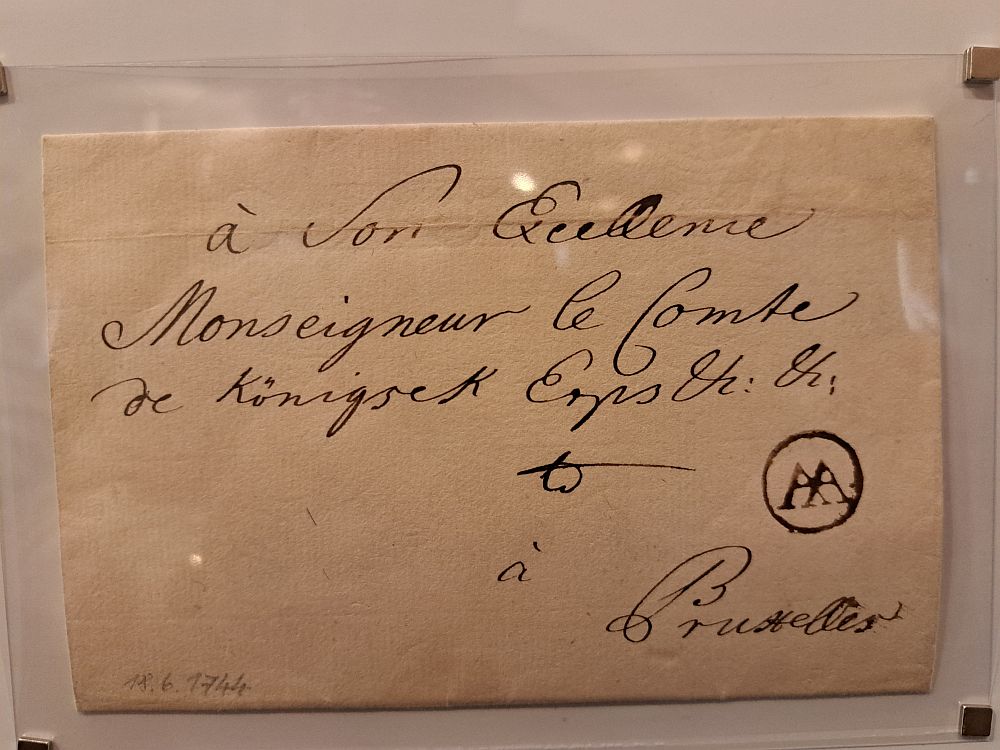 à Son Excellence
Monseigneur le Comte
de Königsek Erps &c: &c:
AA
à
Bruxelles
18.6.1744